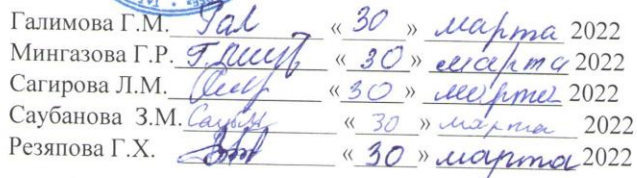 Галимова Г.М. Гал « 30 » марта 2022
Мингазова Г.Р. « 30 » марта 2022
Сагирова Л.М. « 30 » марта 2022
Саубанова З.М. « 30 » марта 2022
Резяпова Г.Х. « 30 » марта 2022